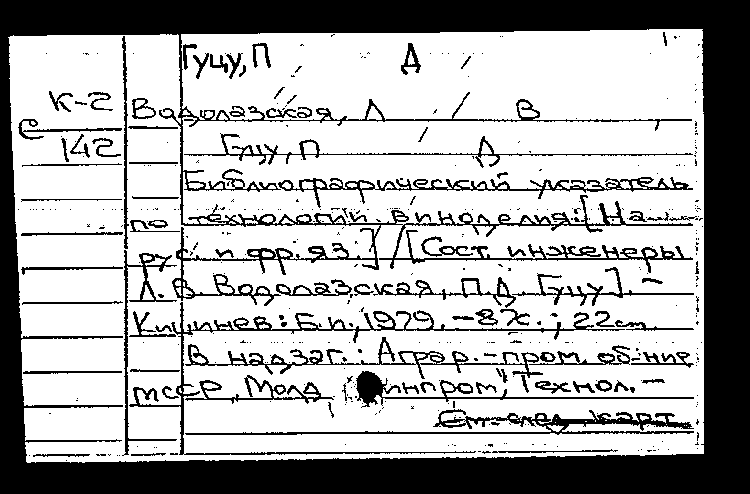 Гуцу, П Д
К-2 Водолазская, Л В
е
142 Гуцу, П Д
Библиографический указатель
по технологии виноделия: [На
рус. и фр. яз.] / [Сост. инженеры
Л. В. Водолазская, П. Д. Гуцу]. —
Кишинев: Б. и., 1979. — 8 с.; 22 cm
В надзаг.: Аграр.-пром. об-ние
МССР „Молд инпром", Технол. —
См. след. карт.